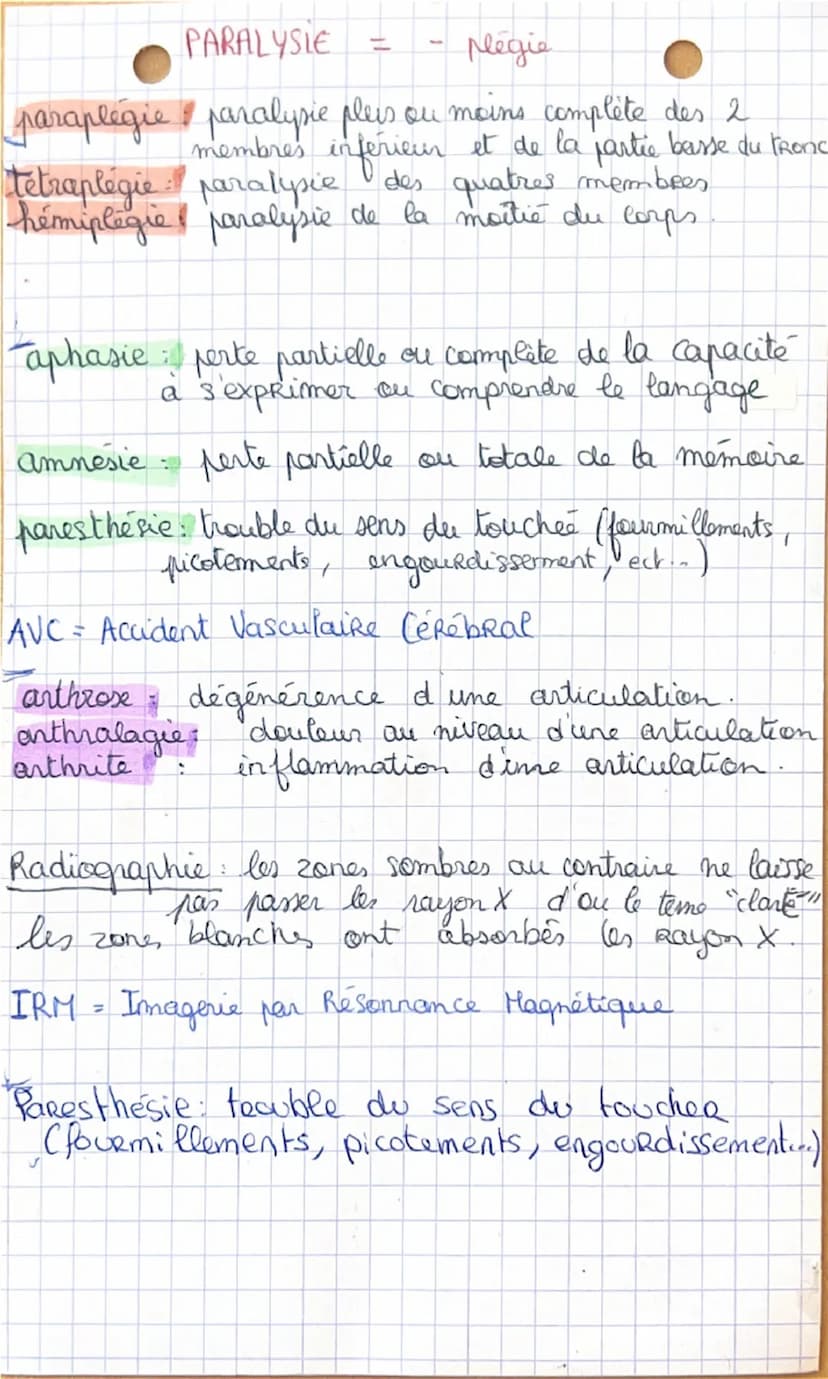 PARALYSIE = - plégie
paraplégie : paralysie plus ou moins complète des 2
membres inférieur et de la partie basse du tronc
tétraplégie : paralysie des quatres membres
hémiplégie : paralysie de la moitié du corps.
aphasie : perte partielle ou complète de la capacité
à s'exprimer ou comprendre le langage
amnésie : perte partielle ou totale de la mémoire
paresthésie : trouble du sens du touché (fourmillements,
picotements, engourdissement, ect...)
AVC = Accident Vasculaire Cérébral
arthrose : dégénérence d'une articulation.
arthralagie : douleur au niveau d'une articulation
arthrite : inflammation d'une articulation.
Radiographie : les zones sombres au contraire ne laisse
pas passer les rayon X d'ou le terme "clarté"
les zones blanches ont absorbés les rayon X.
IRM = Imagerie par Résonnance Magnétique
Paresthésie : trouble du sens du toucher
(fourmillements, picotements, engourdissement...)